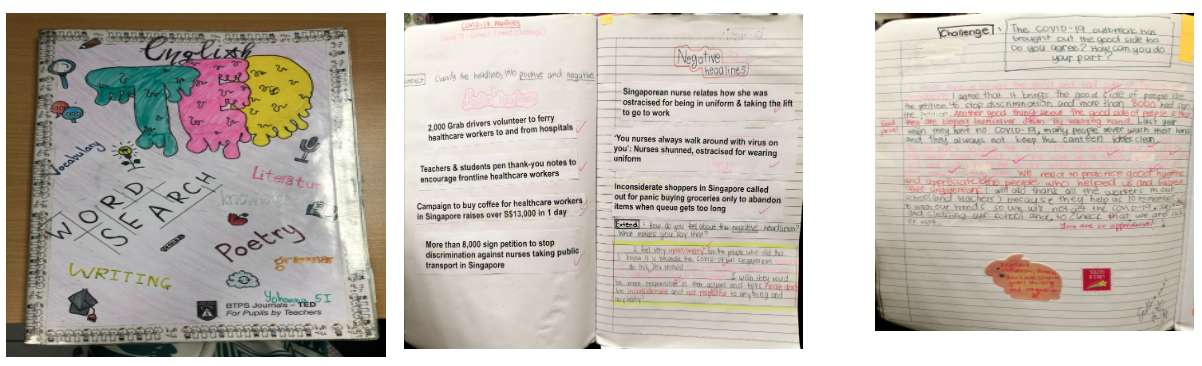 English
TED
Vocabulary
WORD
SEARCH
Literatu
knowledge
Poetry
grammar
WRITING
Yohanna 5I
BTPS Journals – TED
For Pupils by Teachers
COVID-19 Headlines
Classify the headlines into positive and negative
2,000 Grab drivers volunteer to ferry
healthcare workers to and from hospitals
Teachers & students pen thank-you notes to
encourage frontline healthcare workers
Campaign to buy coffee for healthcare workers
in Singapore raises over S$13,000 in 1 day
More than 8,000 sign petition to stop
discrimination against nurses taking public
transport in Singapore
Negative
headlines
Singaporean nurse relates how she was
ostracised for being in uniform & taking the lift
to go to work
'You nurses always walk around with virus on
you': Nurses shunned, ostracised for wearing
uniform
Inconsiderate shoppers in Singapore called
out for panic buying groceries only to abandon
items when queue gets too long
Extend: How do you feel about the positive headlines?
What makes you say that?
I feel very for the people who did this.
I know it is because the COVID-19 but Singaporean
do this, you should
I wish they would
be more responsible in their actions and talks. Please don't
be inconsiderate and not respective to anything and
anybody!
Challenge:
The COVID-19 outbreak has
brought out the good side too.
Do you agree? How can you do
your part?
I agree that it brings the good side of people like
the petition to stop discrimination and more than 8000 had sign
the petition. Another good thing about the good side of people is that
Good
point!
they are keeping themselves clean by washing hand. Last year
when they have no COVID-19, many people never wash their hand
and they always not keep the canteen tables clean.
We need to practise good hygiene
and appreciate the people who helped us and helped
the Singaporeans. I will also thank all the workers in our
school (and teachers) because they help us to remember
to wash our hands so we will not get the COVID-19,
and cleaning our school and to check that we are sick
or not.
You are so appreciative!
YOU'RE
A STAR!